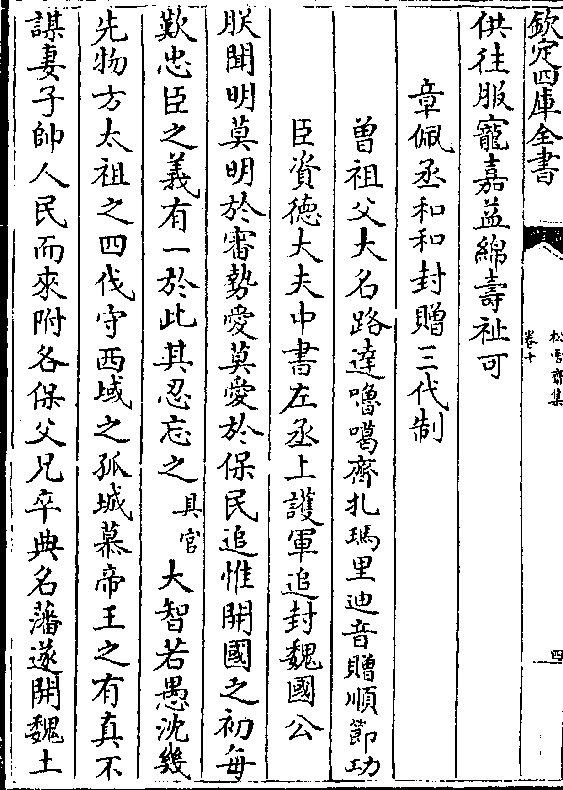 欽定四庫全書
松雪齋集
卷十
四
供往服寵嘉益綿壽祉可
章佩丞和和封贈三代制
曽祖父大名路達嚕噶齊扎瑪里迪音贈順節功
臣資德大夫中書左丞上護軍追封魏國公
朕聞明莫明於審勢愛莫愛於保民追惟開國之初每
歎忠臣之義有一於此其忍忘之具官大智若愚沈幾
先物方太祖之四伐守西域之孤城慕帝王之有真不
謀妻子帥人民而來附各保父兄卒典名藩遂開魏土